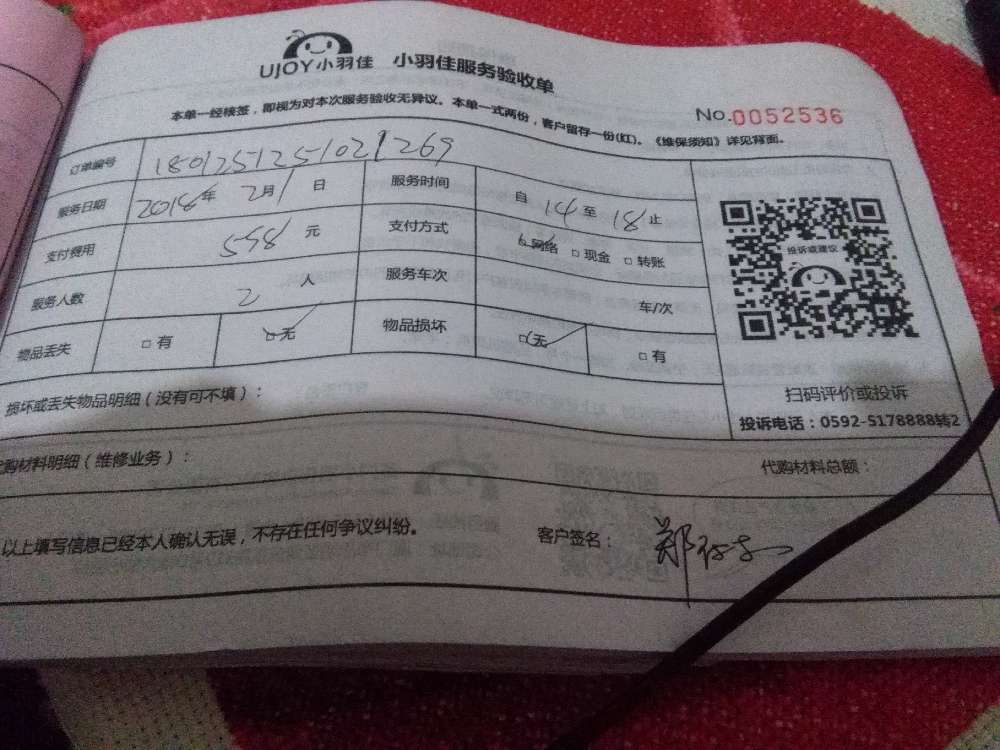 UJOY小羽佳 小羽佳服务验收单
本单一经核签，即视为对本次服务验收无异议。本单一式两份，客户留存一份(红)。《维保须知》详见背面。
No.0052536
订单编号 1801251251021269
服务日期 2018年 2月 1日 服务时间 自 14 至 18 止
支付费用 558 元 支付方式 网络 □ 现金 □ 转账
服务人数 2 人 服务车次 车/次
物品丢失 □ 有 □ 无 物品损坏 □ 无 □ 有
投诉或建议
扫码评价或投诉
投诉电话：0592-5178888转2
损坏或丢失物品明细（没有可不填）：
代购材料明细（维修业务）： 代购材料总额：
以上填写信息已经本人确认无误，不存在任何争议纠纷。 客户签名： 郑